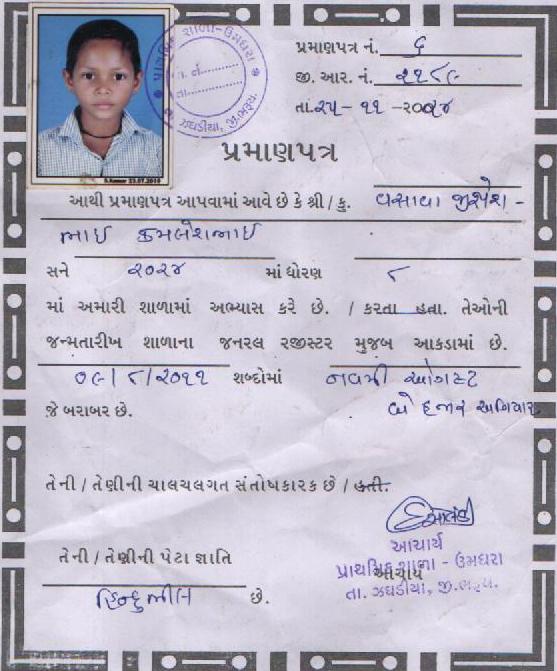 પ્રાથમિક શાળા-ઉમધરા
તા. ઝઘડીયા, જી.ભરૂચ.
પ્રમાણપત્ર નં. ૬
જી. આર. નં. ૨૨૮૯
તા.૨૫-૧૧-૨૦૨૪
પ્રમાણપત્ર
આથી પ્રમાણપત્ર આપવામાં આવે છે કે શ્રી / કુ. વસાવા જીજ્ઞેશ-
ભાઇ કમલેશભાઇ
સને ૨૦૨૪ માં ધોરણ ૮
માં અમારી શાળામાં અભ્યાસ કરે છે. / કરતા હતા. તેઓની
જન્મતારીખ શાળાના જનરલ રજીસ્ટર મુજબ આકડામાં છે.
૦૯/૮/૨૦૧૧ શબ્દોમાં નવમી ઓગસ્ટ
બે હજાર અગિયાર
જે બરાબર છે.
તેની / તેણીની ચાલચલગત સંતોષકારક છે / હતી.
આચાર્ય
તેની / તેણીની પેટા જ્ઞાતિ
પ્રાથમિક શાળા - ઉમધરા
આચાર્ય
તા. ઝઘડીયા, જી.ભરૂચ.
હિન્દુ ભીલ છે.